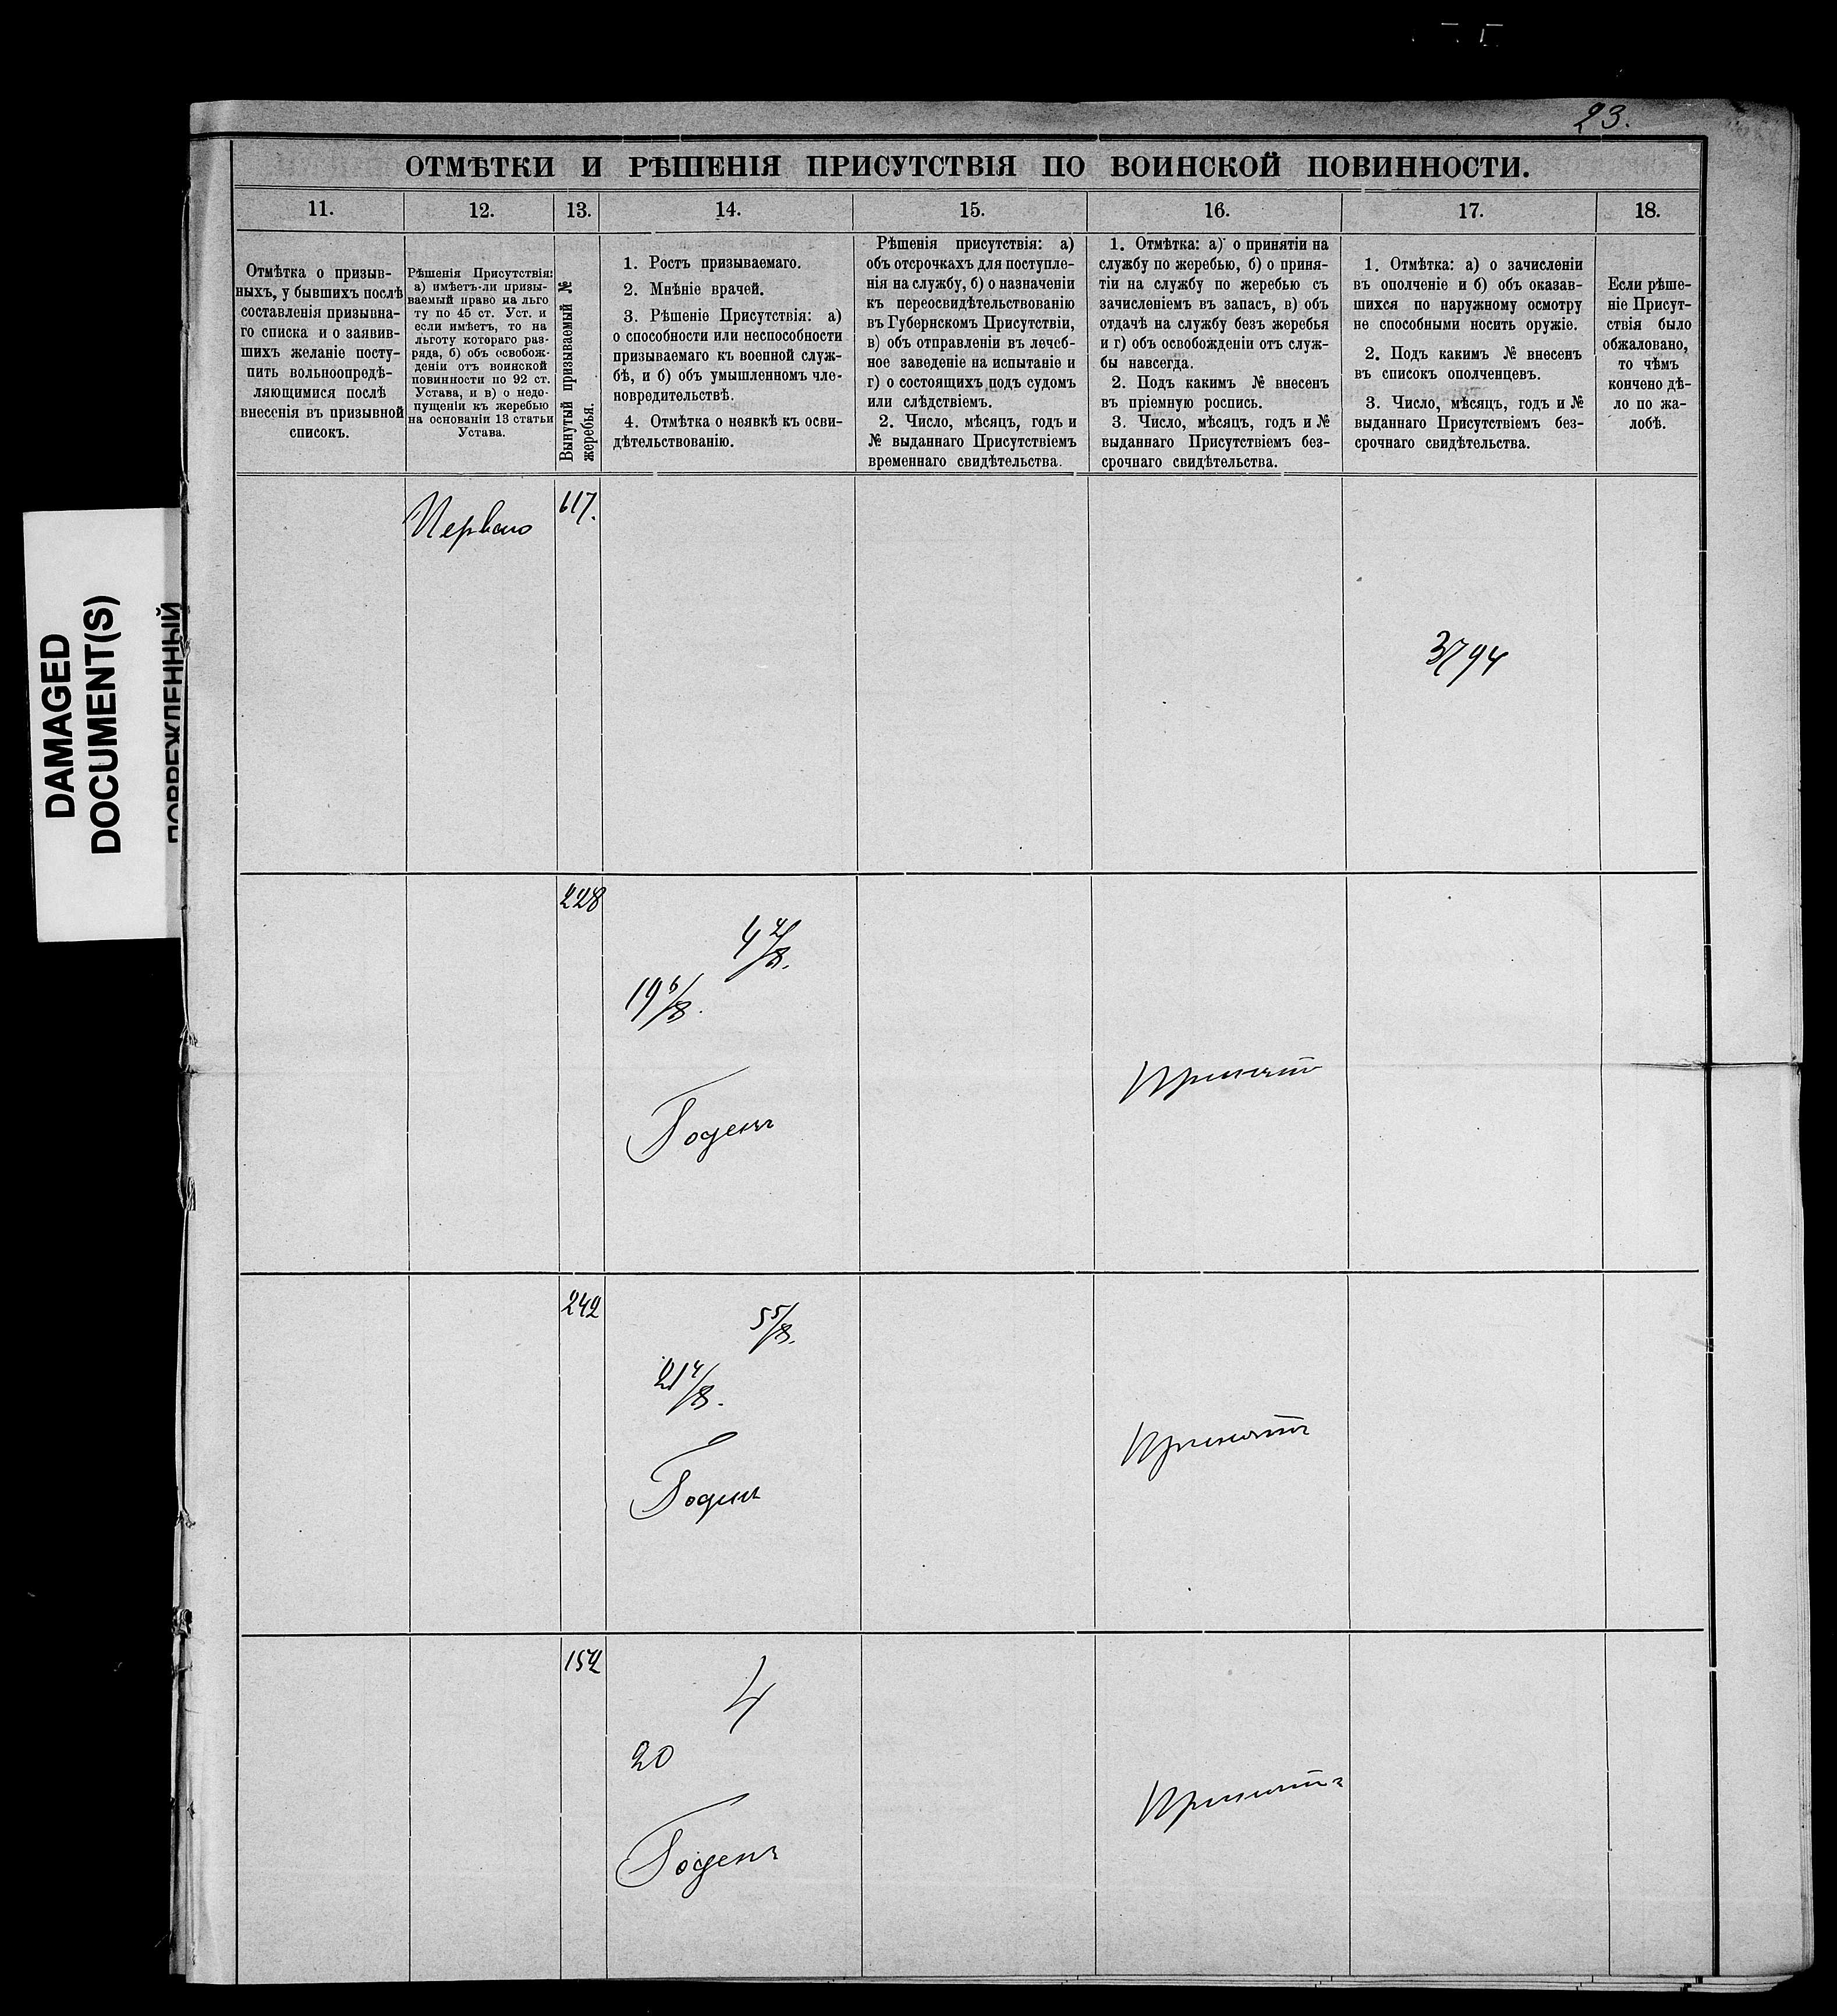 23.
ОТМѢТКИ И РѢШЕНІЯ ПРИСУТСТВІЯ ПО ВОИНСКОЙ ПОВИННОСТИ.
11.
12.
13.
14.
15.
16.
17.
18.
Отмѣтка о призыв-
ныхъ, у бывшихъ послѣ
составленія призывна-
го списка и о заявив-
шихъ желаніе посту-
пить вольноопредѣ-
ляющимися послѣ
внесенія въ призывной
списокъ.
Рѣшенія Присутствія:
а) имѣетъ-ли призы-
ваемый право на льго
ту по 45 ст. Уст. и
если имѣетъ, то на
льготу котораго раз-
ряда, б) объ освобож-
деніи отъ воинской
повинности по 92 ст.
Устава, и в) о недо-
пущеніи къ жеребью
на основаніи 13 статьи
Устава.
Вынутый призываемый №
жеребья.
1. Ростъ призываемаго.
2. Мнѣніе врачей.
3. Рѣшеніе Присутствія: а)
о способности или неспособности
призываемаго къ военной служ-
бѣ, и б) объ умышленномъ чле-
новредительствѣ.
4. Отмѣтка о неявкѣ къ осви-
дѣтельствованію.
Рѣшенія присутствія: а)
объ отсрочкахъ для поступле-
нія на службу, б) о назначеніи
къ переосвидѣтельствованію
въ Губернскомъ Присутствіи,
в) объ отправленіи въ лечеб-
ное заведеніе на испытаніе и
г) о состоящихъ подъ судомъ
или слѣдствіемъ.
2. Число, мѣсяцъ, годъ и
№ выданнаго Присутствіемъ
временнаго свидѣтельства.
1. Отмѣтка: а) о принятіи на
службу по жеребью, б) о приня-
тіи на службу по жеребью съ
зачисленіемъ въ запасъ, в) объ
отдачѣ на службу безъ жеребья
и г) объ освобожденіи отъ служ-
бы навсегда.
2. Подъ какимъ № внесенъ
въ пріемную роспись.
3. Число, мѣсяцъ, годъ и №
выданнаго Присутствіемъ без-
срочнаго свидѣтельства.
1. Отмѣтка: а) о зачисленіи
въ ополченіе и б) объ оказав-
шихся по наружному осмотру
не способными носить оружіе.
2. Подъ какимъ № внесенъ
въ списокъ ополченцевъ.
3. Число, мѣсяцъ, годъ и №
выданнаго Присутствіемъ без-
срочнаго свидѣтельства.
Если рѣше-
ніе Присут-
ствія было
обжаловано,
то чѣмъ
кончено дѣ-
ло по жа-
лобѣ.
Перваго
617.
3794
DAMAGED
DOCUMENT(S)
ПОВРЕЖДЕННЫЙ
228
4 4/8.
19 6/8.
Годенъ
Принятъ
242
5 5/8.
21 4/8.
Годенъ
Принятъ
152
4
20
Годенъ
Принятъ